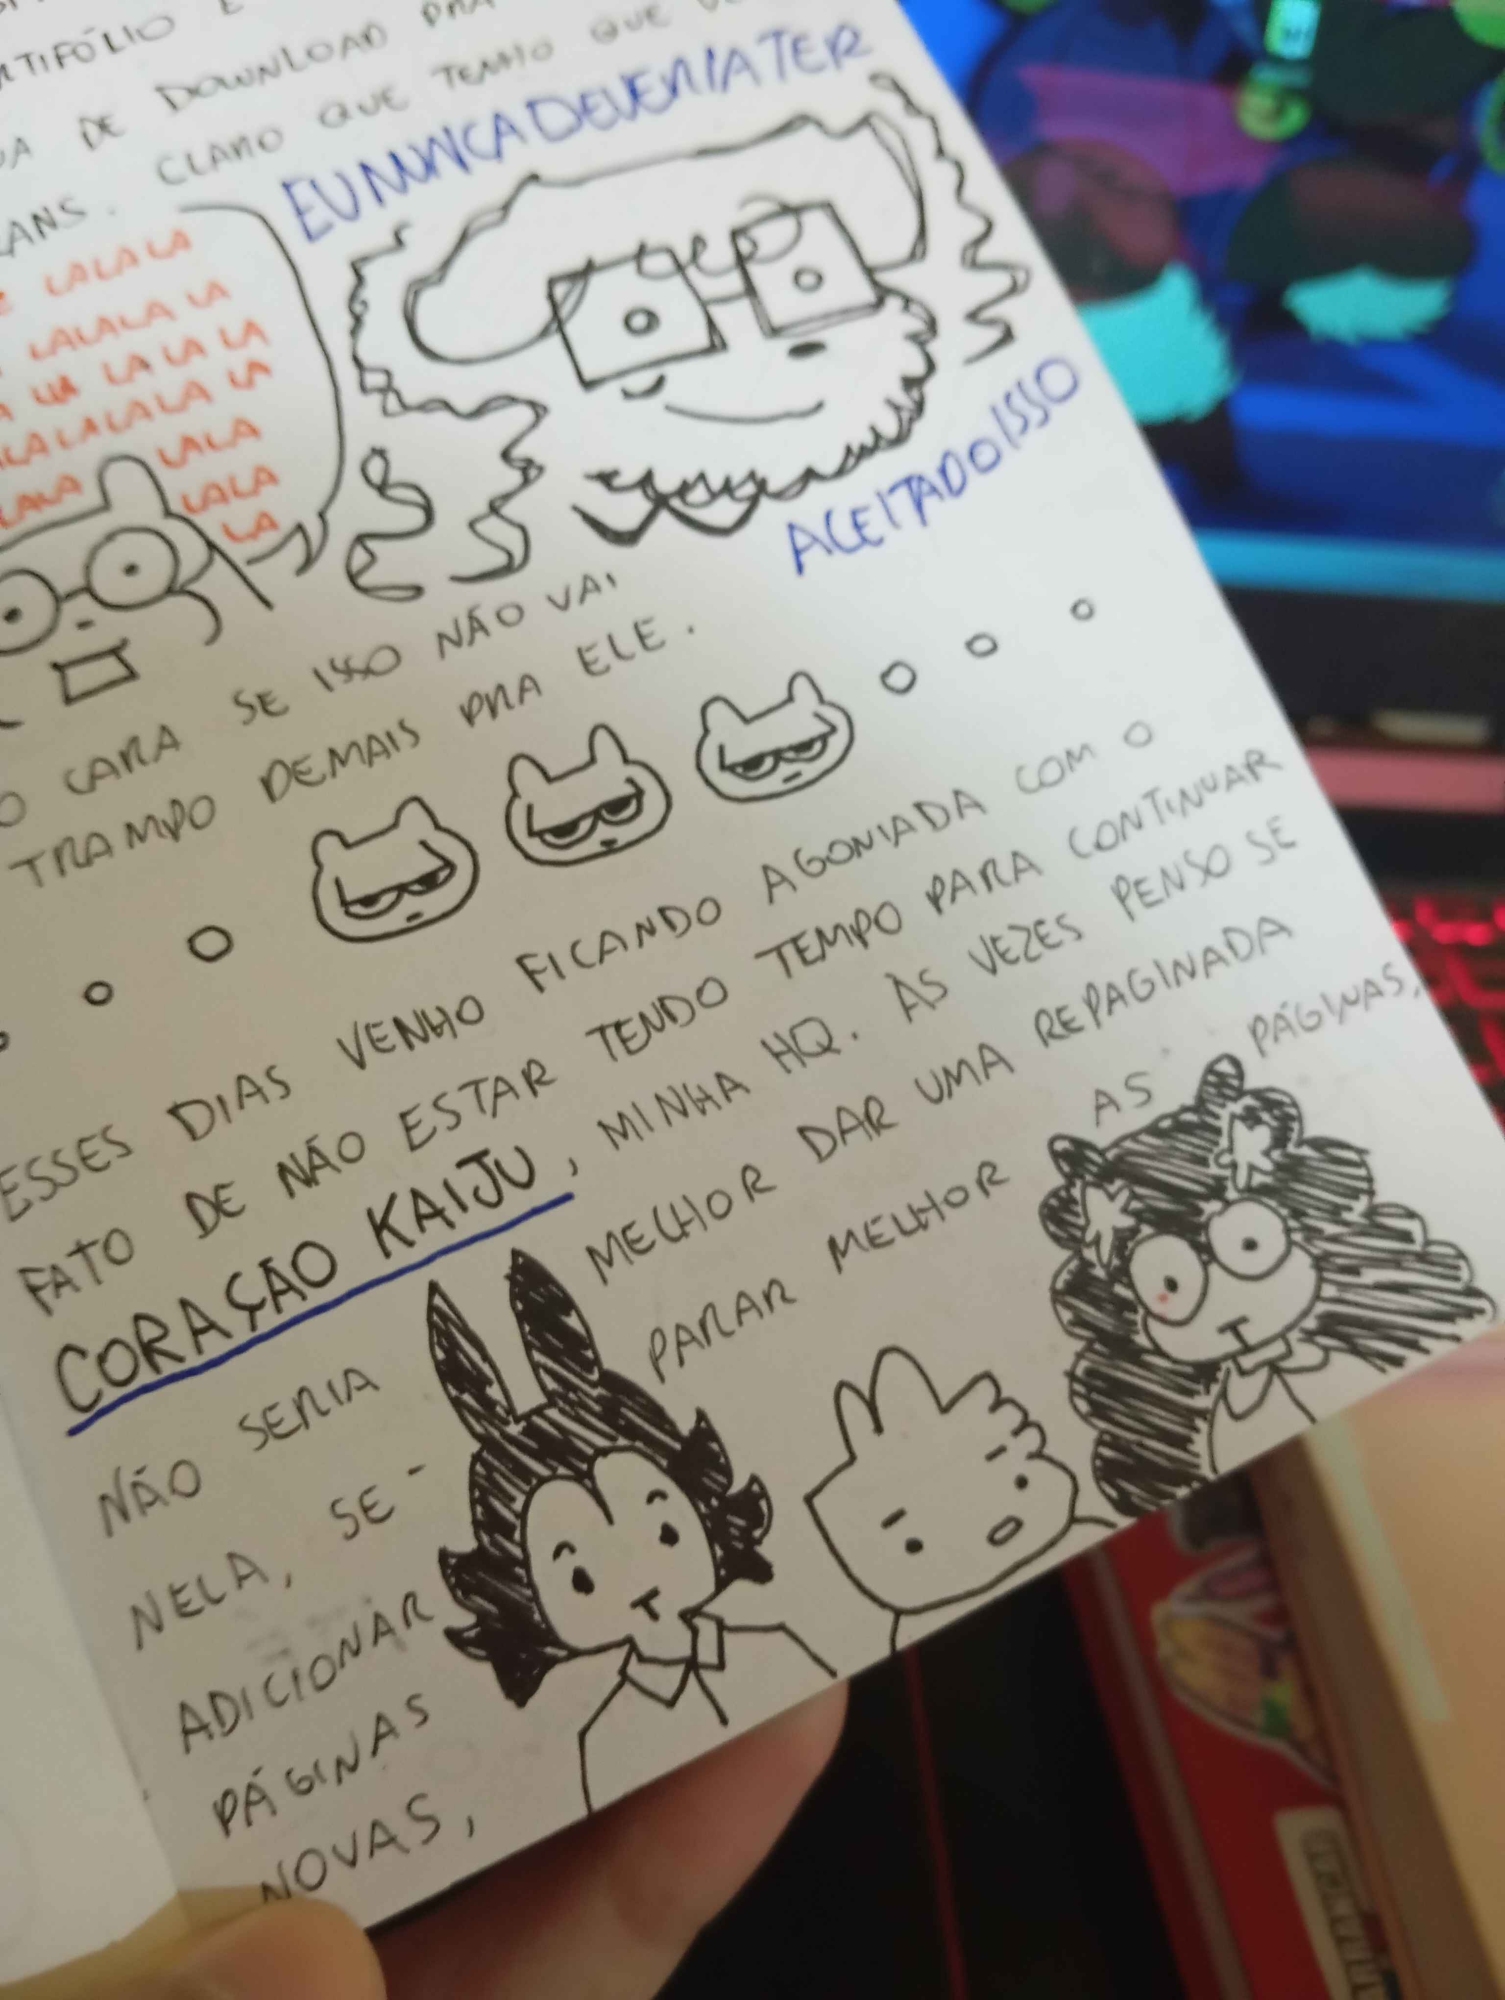 DE DOWNLOAD PRA
CLARO QUE TENHO QUE
EU NUNCA DEVERIA TER
LALALA
LALALA LA
LA LA LA LA
LALALALALA LA
LALA LALA
LALA
LA
ACEITADO ISSO
O CARA SE ISSO NÃO VAI
TRAMPO DEMAIS PRA ELE.
ESSES DIAS VENHO FICANDO AGONIADA COM O
FATO DE NÃO ESTAR TENDO TEMPO PARA CONTINUAR
CORAÇÃO KAIJU, MINHA HQ. ÀS VEZES PENSO SE
NÃO SERIA MELHOR DAR UMA REPAGINADA
NELA, SE-PARAR MELHOR AS PÁGINAS,
ADICIONAR
PÁGINAS
NOVAS,